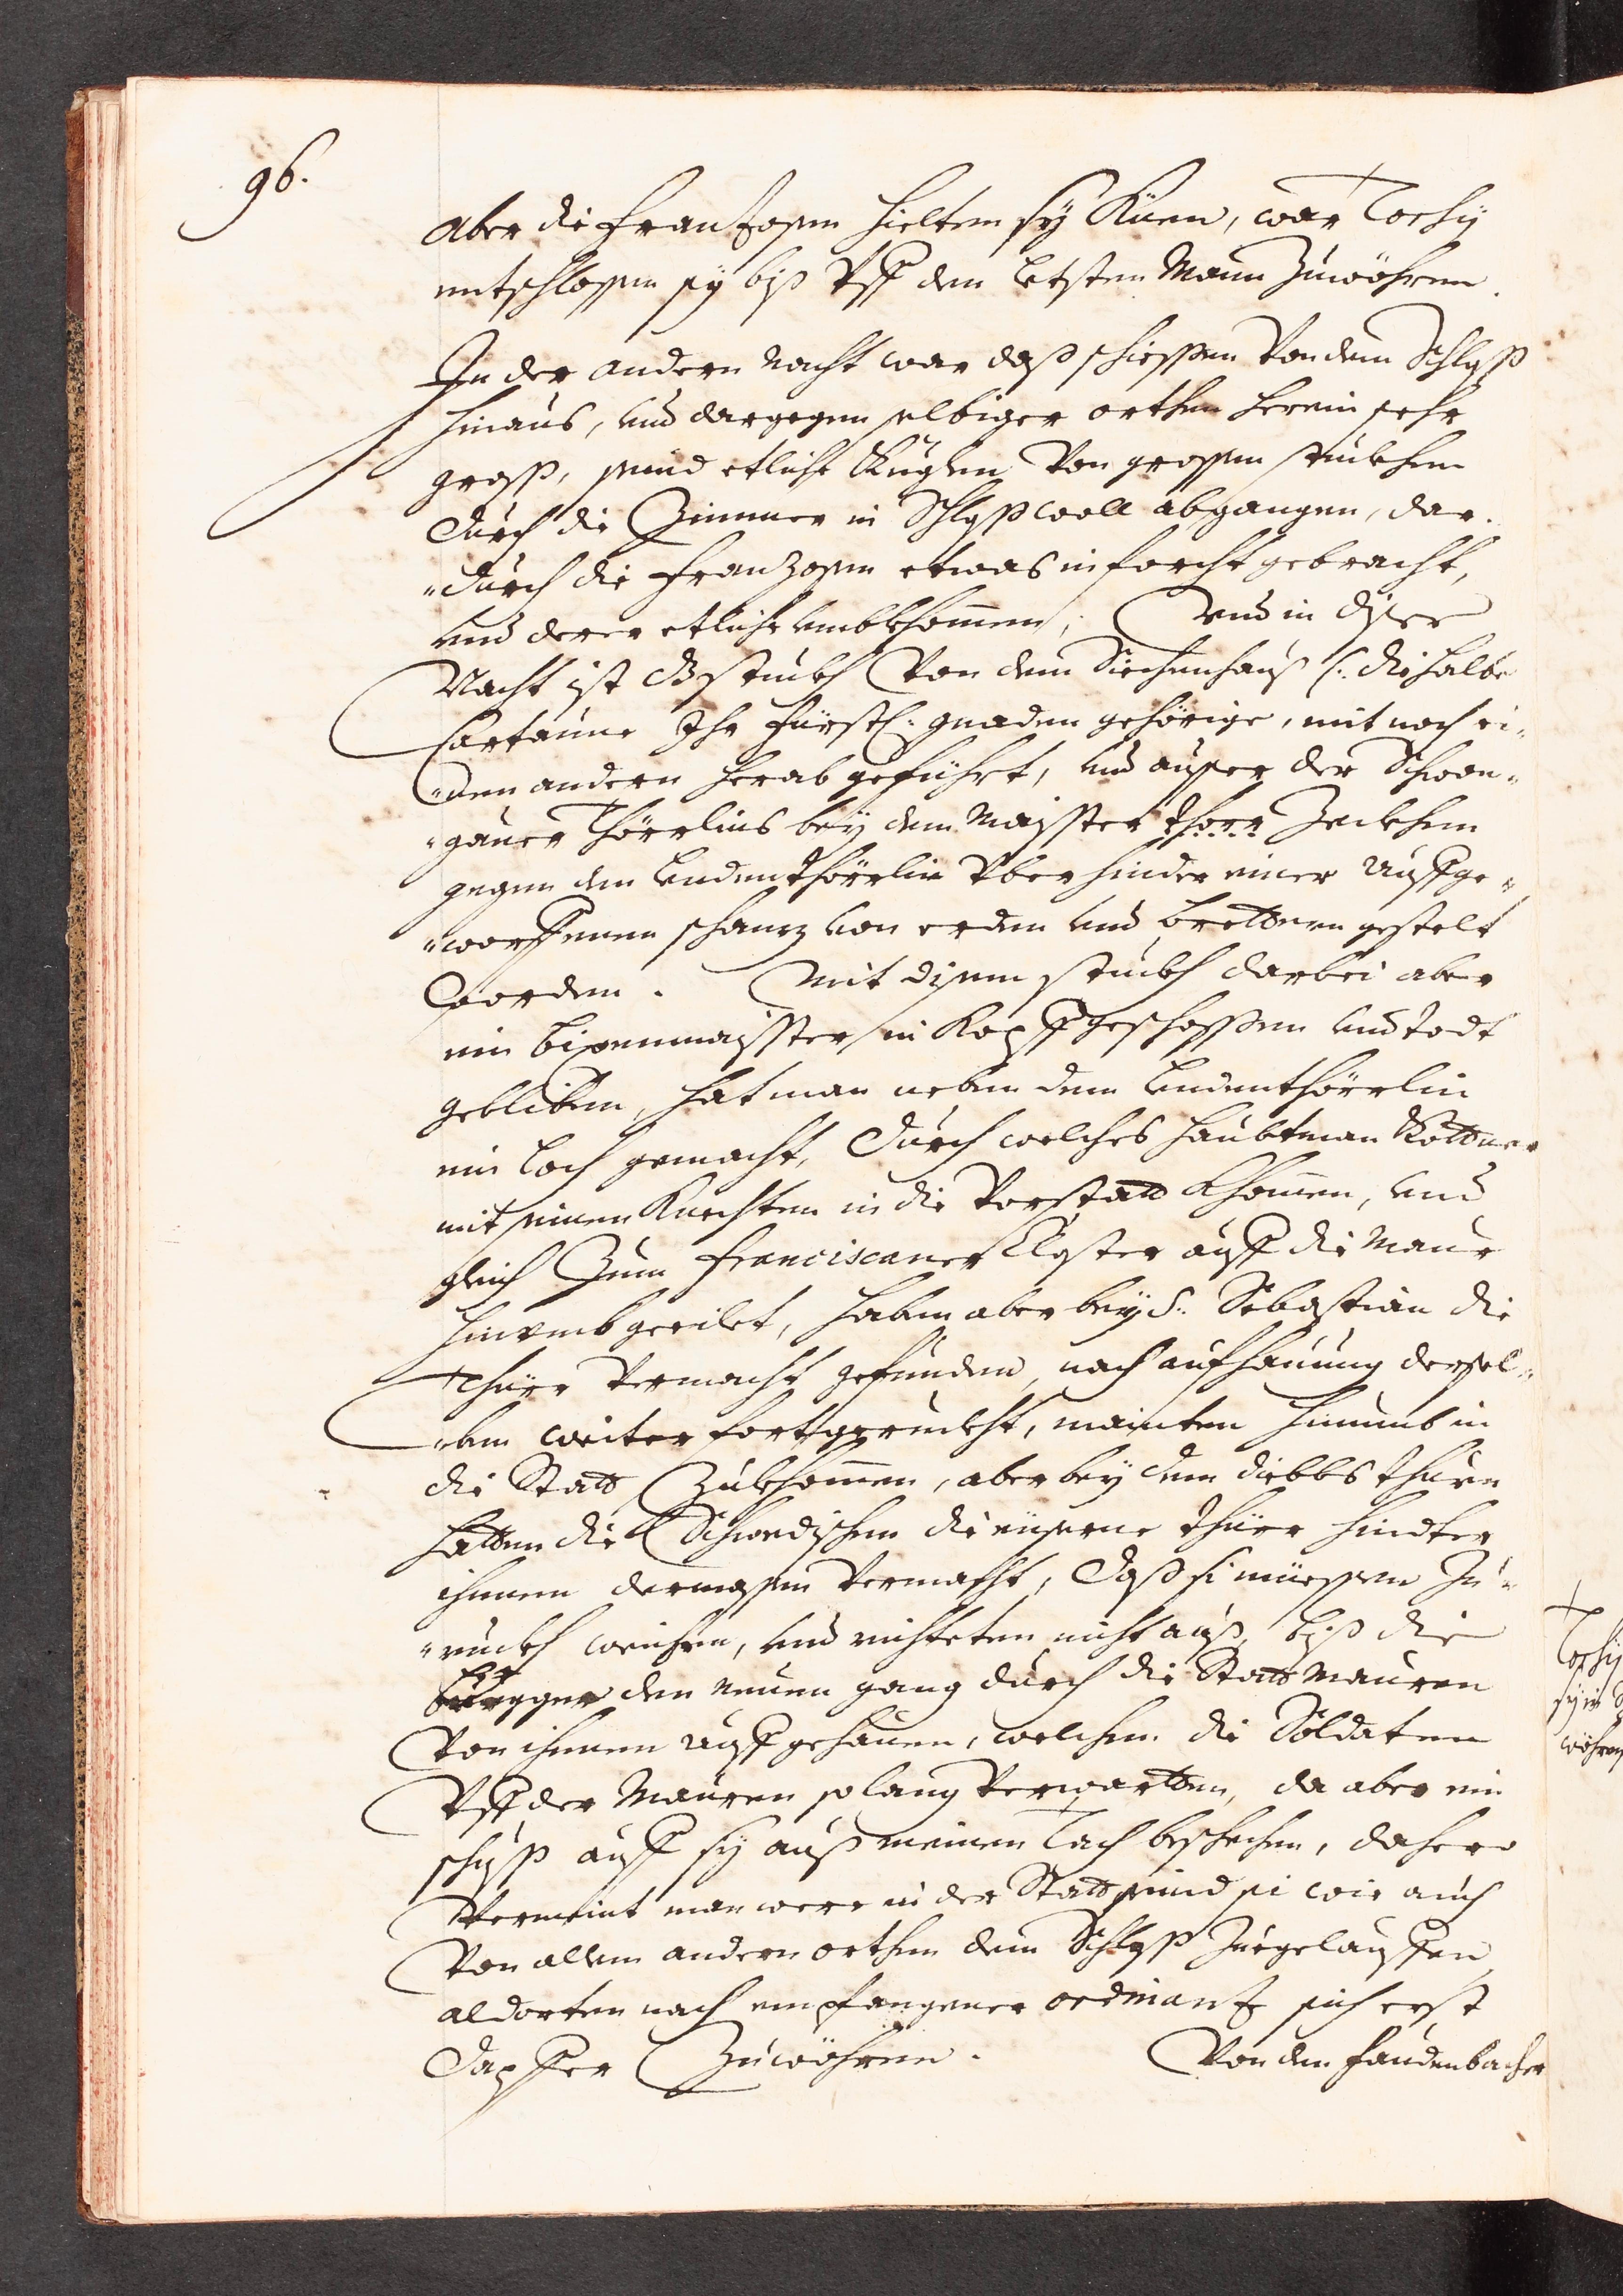 96.
Aber die Franzosen hielten sÿ Küen, war Torhÿ
entschlossen sÿ biß Vff den letsten Mann Zuwöhren.
In der andern nacht war daß schiessen Von dem Schloß
hinaus, und dargegen selbiger orthen herein sehr
groß, seind etliche Kuglen Von grossen stuckhen
durch die Zimmer in Schloß woll abgangen, dar-
"durch die Franzosen etwas in forcht gebracht,
und derer etliche umbkhomen, und in diser
Nacht ist stuckh Von dem Siechenhauß (: die halbe
Cartaune Ihr Fürstl: gnaden gehörige, mit noch ei"
"nen andern herab geführt, und ausser der Schwon"
"gauer Thörrlins beÿ dem Maÿster thorr Zeckhen
gegen dem Endenthörrlin Vber hinder einer auffge"
"worffenen schanz von erden und brettern gestelt
worden. Mit disem stuckh darbei aber
ein bixenmaÿster in Kopff geschossen und todt
gebliben, hat man neben dem Endenthörrlin
ein loch gemacht, durch welches haubtman Rottner
mit seinen Knechten in die Vorstatt khomen, und
gleich Zum Franciscaner Closter auff die Maur
hinumb geeilet, haben aber beÿ S: Sebastian die
Thürr Vermacht gefunden, nach aufhauung dersel"
"ben weiter fortgeruckht, mainten hinumb in
die Statt Zukhomen, aber beÿ dem diebbs thurn
hatten die Schwedischen die eiserne thürr hindter
ihnnen dermassen Vermacht, daß si müessen Zu"
"ruckh weichen, und richteten nicht auß, biß die
den neuen gang durch die Statt Mauren
Von ihnnen auff gehauen, welchen die Soldaten
Vff der Mauren so lang Verwartten, da aber ein
schuß auff sÿ auß meinem Tach beschechen, dahero
Vermeint man were in der Statt seind si wie auch
Von allen andern orthen dem Schloß Zugelauffen,
aldorten nach empfangener ordinantz sich erst
dapffer Zuwöhren. Von dem Faudenbacher
Torhÿ
sÿ in
wöhren